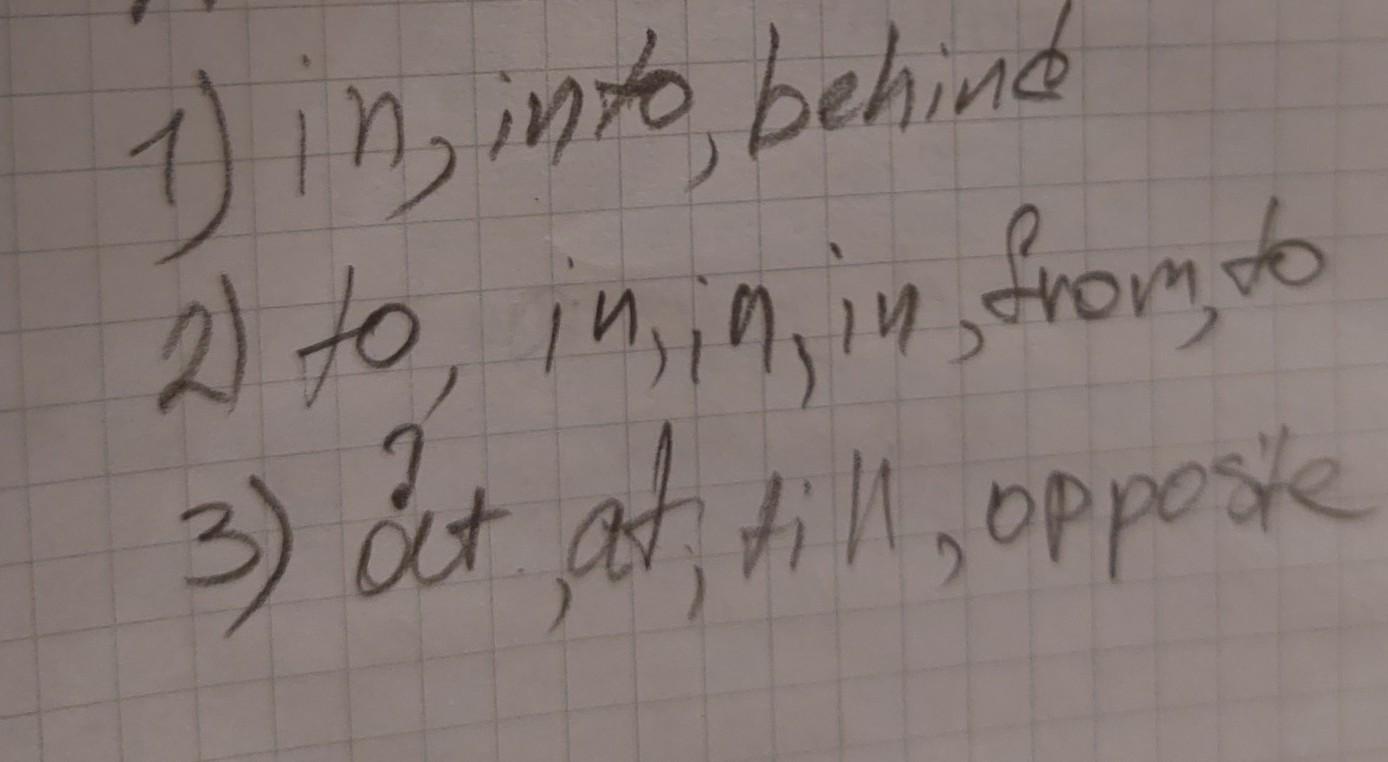 1) in, into, behind
2) to, in, in, in, from, to
?
3) at, at, till, opposite